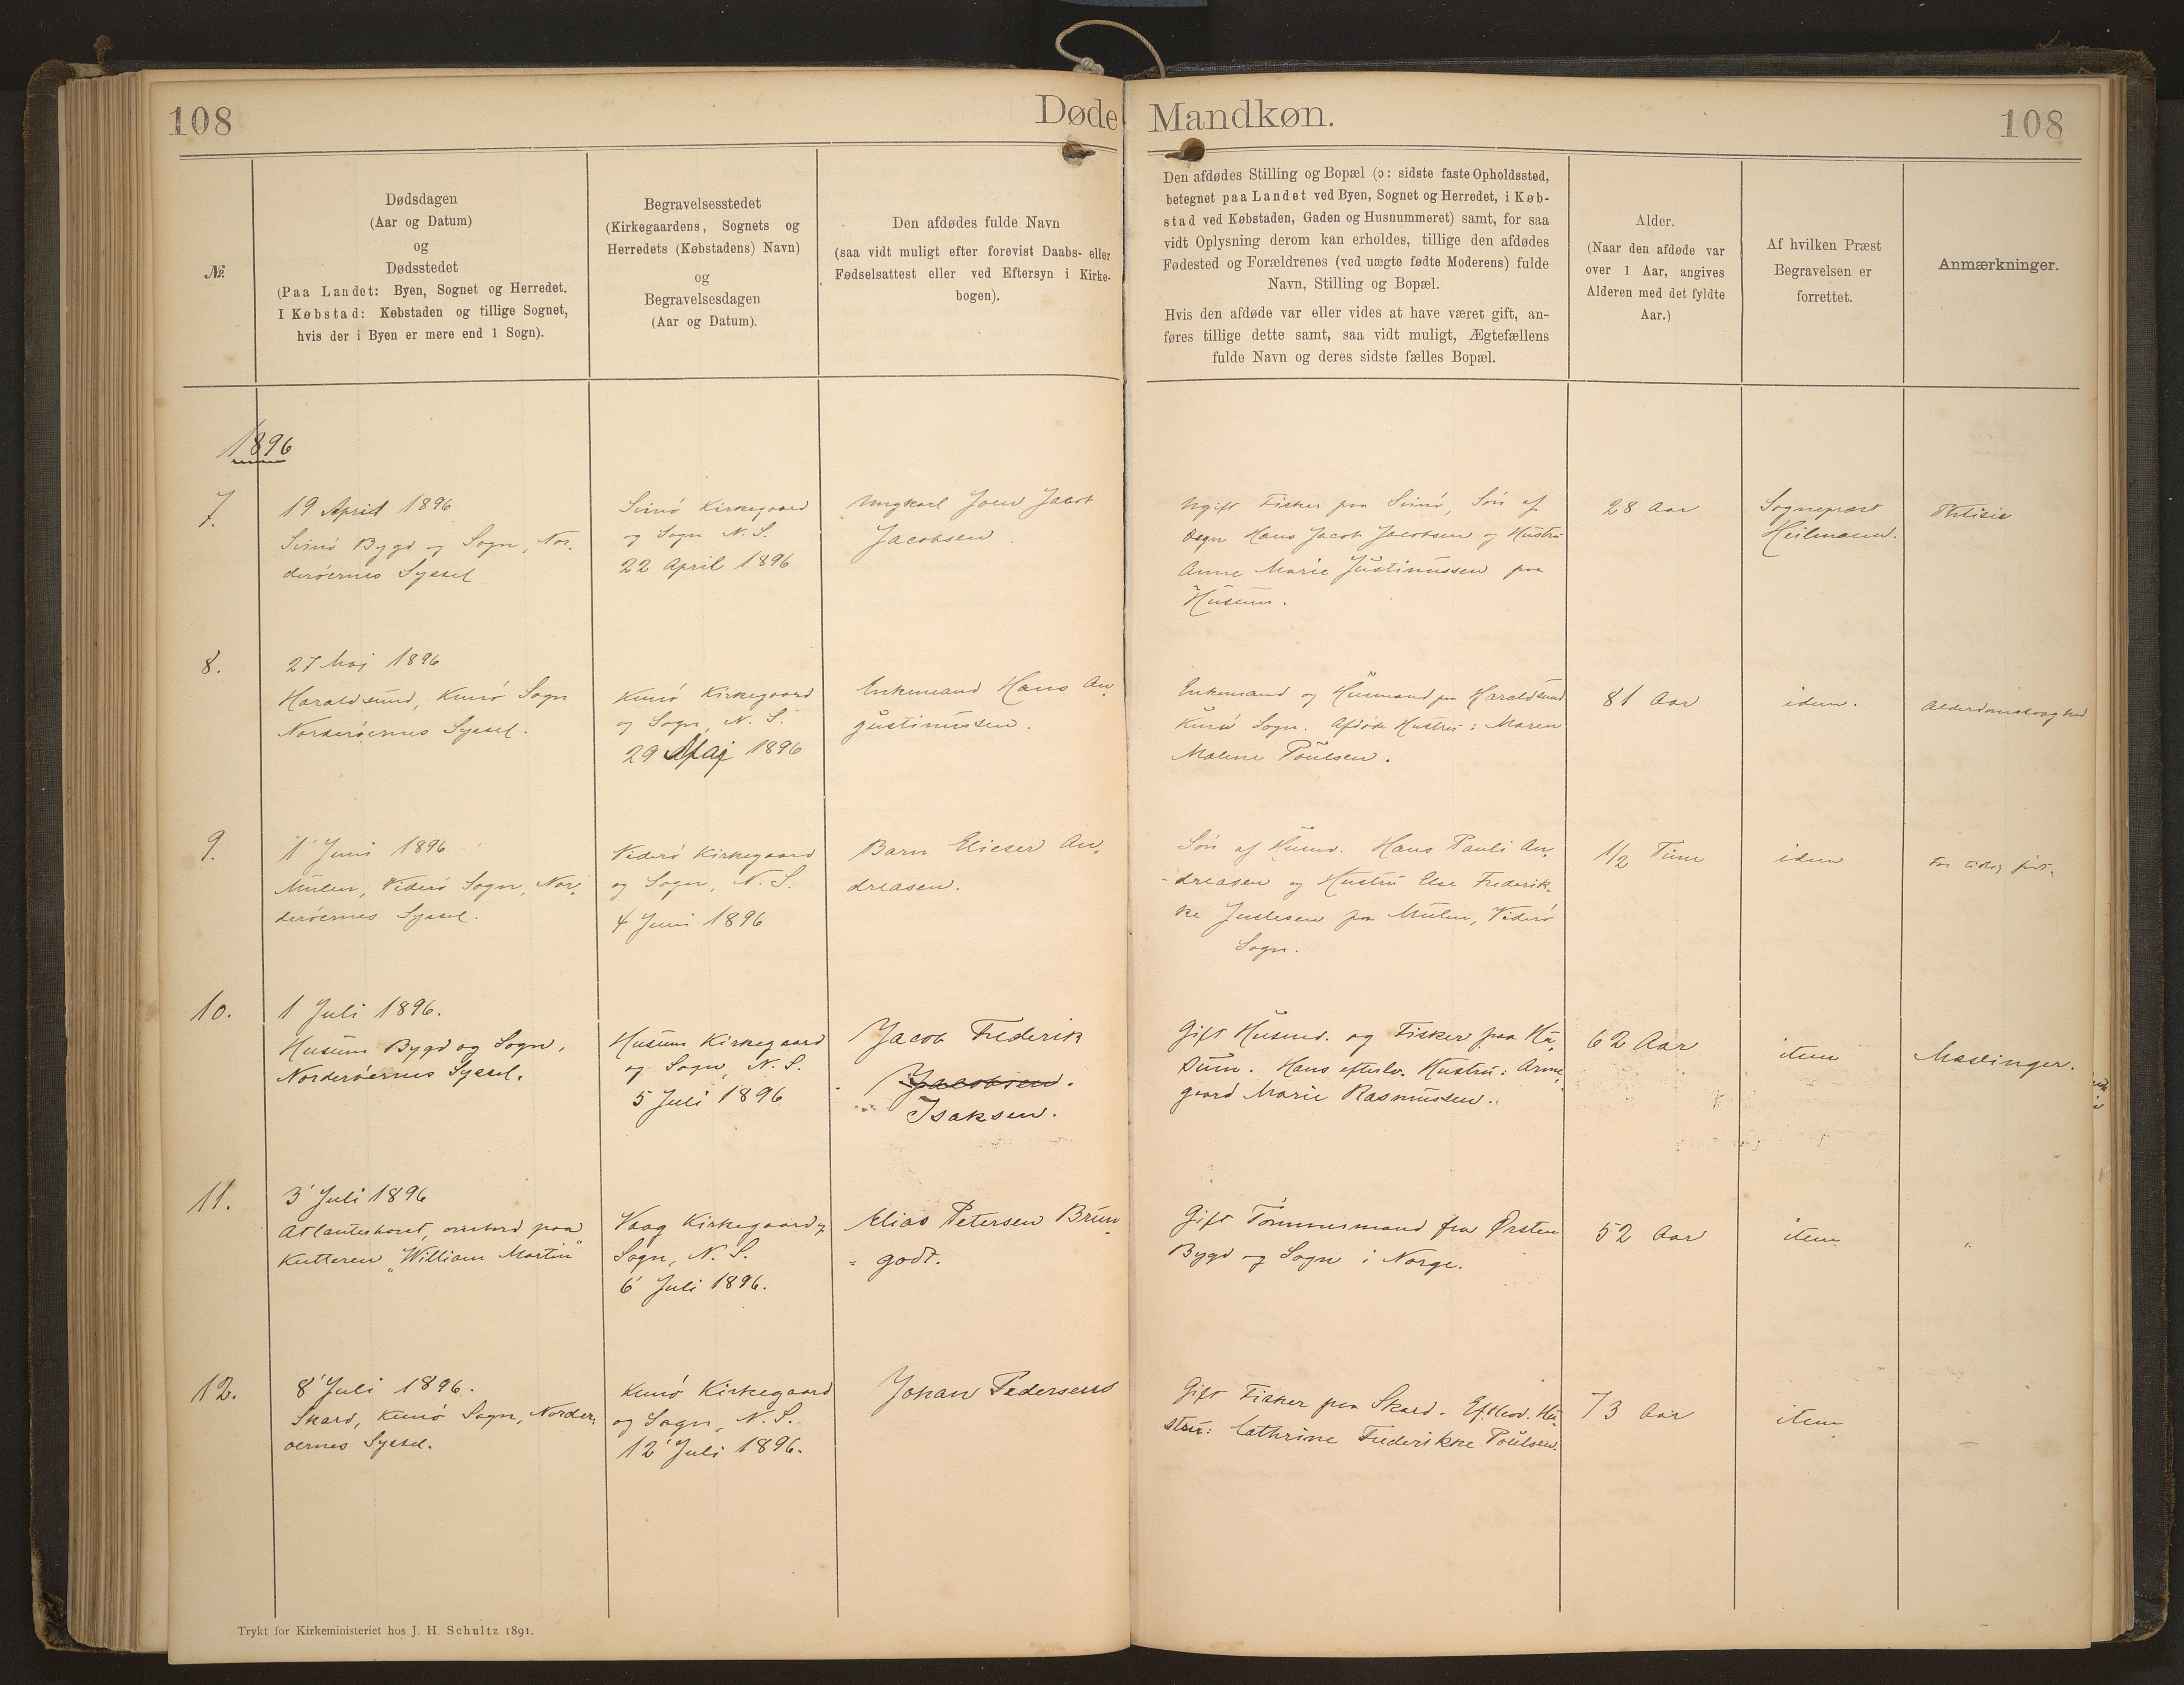 108
Døde
Mandkøn.
108
№.
Dødsdagen
(Aar og Datum)
og
Dødsstedet
(Paa Landet: Byen, Sognet og Herredet.
I Købstad: Købstaden og tillige Sognet,
hvis der i Byen er mere end 1 Sogn).
Begravelsesstedet
(Kirkegaardens, Sognets og
Herredets (Købstadens) Navn)
og
Begravelsesdagen
(Aar og Datum).
Den afdødes fulde Navn
(saa vidt muligt efter forevist Daabs- eller
Fødselsattest eller ved Eftersyn i Kirke-
bogen).
Den afdødes Stilling og Bopæl (ɔ: sidste faste Opholdssted,
betegnet paa Landet ved Byen, Sognet og Herredet, i Køb-
stad ved Købstaden, Gaden og Husnummeret) samt, for saa
vidt Oplysning derom kan erholdes, tillige den afdødes
Fødested og Forældrenes (ved uægte fødte Moderens) fulde
Navn, Stilling og Bopæl.
Hvis den afdøde var eller vides at have været gift, an-
føres tillige dette samt, saa vidt muligt, Ægtefællens
fulde Navn og deres sidste fælles Bopæl.
Alder.
(Naar den afdøde var
over 1 Aar, angives
Alderen med det fyldte
Aar.)
Af hvilken Præst
Begravelsen er
forrettet.
Anmærkninger.
1896
7.
19 April 1896
Svinö Bygd og Sogn, Nor-
deröernes Syssel
Svinö Kirkegaard
og Sogn N. S.
22 April 1896
Ungkarl Joen Jacob
Jacobsen.
Ugift Fisker paa Svinö, Sön af
Degn Hans Jacob Jacobsen og Hustru
Anne Marie Justinussen paa
Husum.
28 Aar
Sognepræst
Heilmann.
Phtisis
8.
27 Maj 1896
Haraldsund, Kunö Sogn
Norderöernes Syssel.
Kunö Kirkegaard
og Sogn, N. S.
29 Maj 1896
Enkemand Hans Au-
gustinussen.
Enkemand og Husmand paa Haraldsund
Kunö Sogn. Afdöde Hustru: Maren
Malene Poulsen.
81 Aar
idem.
Alderdomssvaghed
9.
1 Juni 1896
Mulen, Viderö Sogn, Nor-
deröernes Syssel.
Viderö Kirkegaard
og Sogn, N. S.
4 Juni 1896
Barn Elieser An-
dreasen.
Sön af Husmd. Hans Pauli An-
dreasen og Hustru Else Frederik-
ke Justesen paa Mulen, Viderö
Sogn.
1/2 Time
idem
for tidlig
10.
1 Juli 1896.
Husum Bygd og Sogn,
Norderöernes Syssel.
Husum Kirkegaard
og Sogn, N. S.
5 Juli 1896
Jacob Frederik
Jacobsen.
Isaksen.
Gift Husmd. og Fisker paa Hu-
sum. Hans efterlv. Hustru: Arme-
gaard Marie Rasmussen.
62 Aar
item
Mæslinger.
11.
3 Juli 1896
Atlanterhavet, ombord paa
Kutteren „William Martin"
Vaag Kirkegaard og
Sogn, N. S.
6 Juli 1896.
Elias Petersen Brun-
godt.
Gift Tömmermand fra Ørsten
Bygd og Sogn i Norge.
52 Aar
item
"
12.
8 Juli 1896.
Skard, Kunö Sogn, Norder-
öernes Syssel.
Kunö Kirkegaard
og Sogn, N. S.
12 Juli 1896.
Johan Pedersen
Gift Fisker paa Skard. Efterlvd. Hu-
stru: Cathrine Frederikke Poulsen.
73 Aar
item
—
Trykt for Kirkeministeriet hos J. H. Schultz 1891.